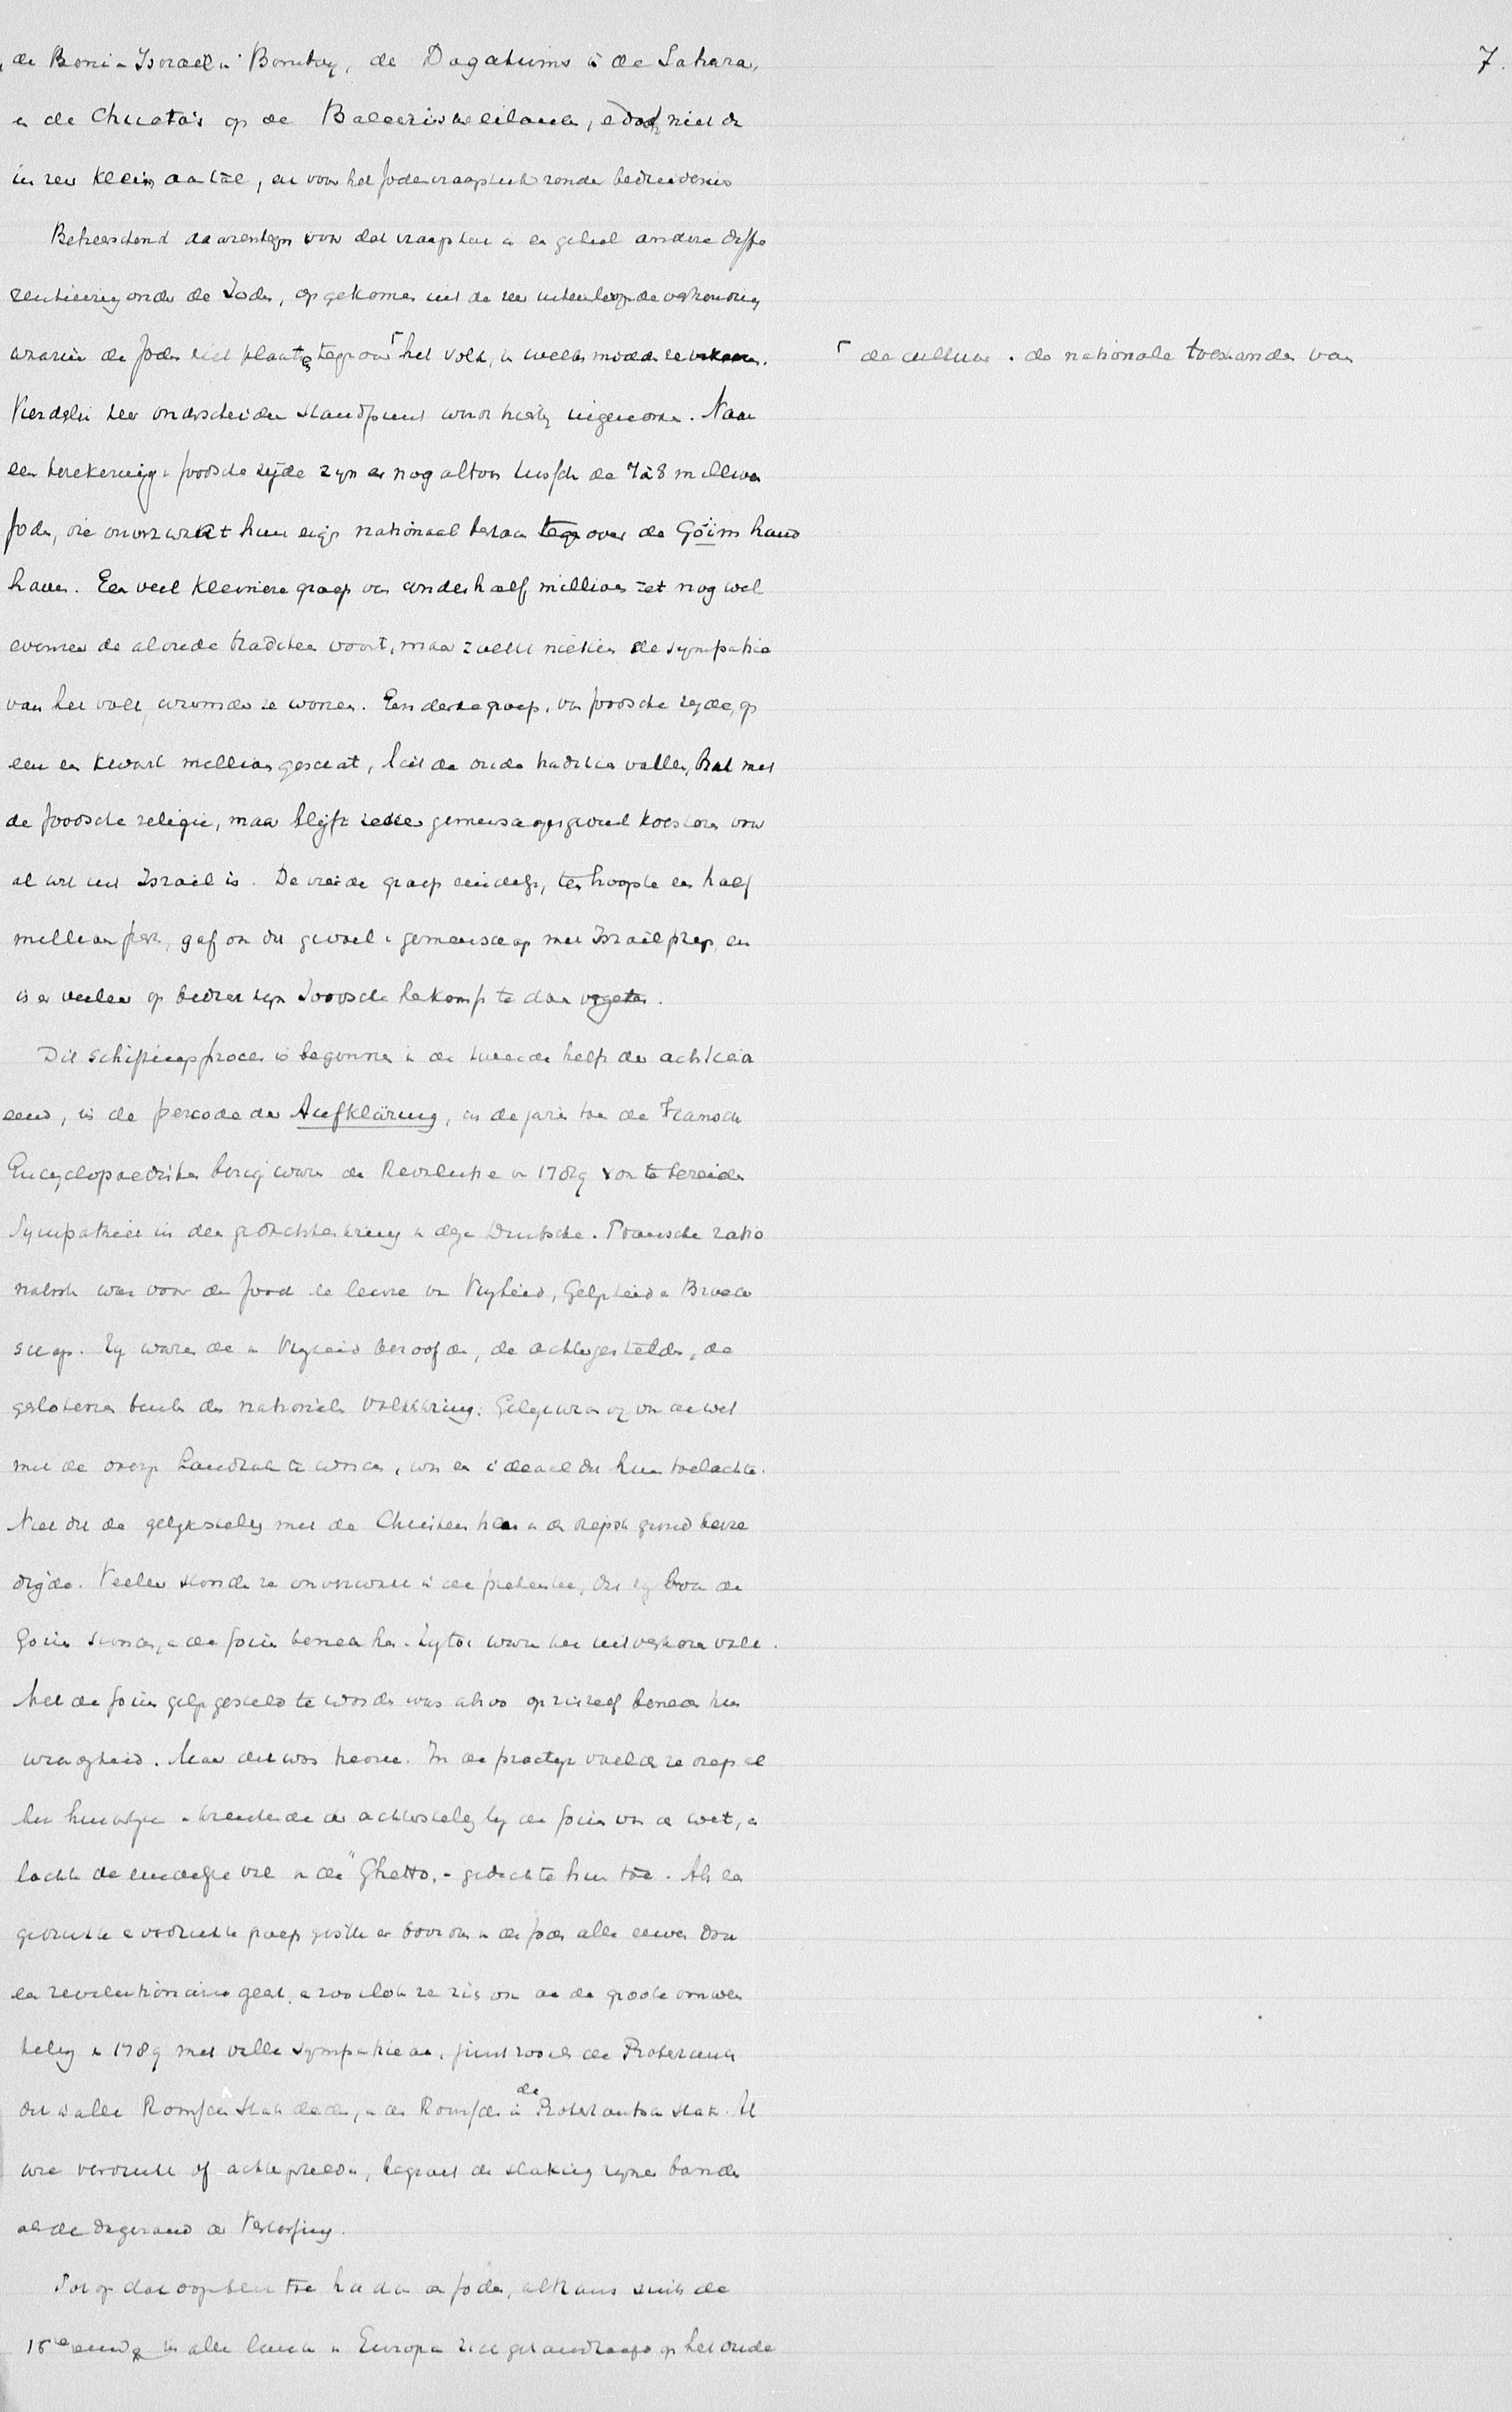 7.
de Beni-Israël in Bombay, de Dagatums in de Sahara,
en de Chueta's op de Balearische eilanden, edoch niet dan
in zeer klein aantal, en voor het Jodenvraagstuk zonder beteekenis
Beheerschend daarentegen voor dat vraagstuk is een geheel andere diffe
rentieering onder de Joden, opgekomen uit de zeer uiteenloopende verhouding
waarin de Joden zich plaatsten tegenover ⌈ het volk, in welks midden ze verkeeren.
⌈ de cultuur en de nationale toestanden van
Vierderlei zeer onderscheiden standpunt wordt hierbij ingenomen. Naar
een berekening van Joodsche zijde zijn er nog altoos tusschen de 7 à 8 millioen
Joden, die onverzwakt hun eigen nationaal bestaan tegenover de Goïm hand
haven. Een veel kleinere groep van anderhalf millioen zet nog wel
evenzeer de aloude traditien voort, maar zoekt niettemin de sympathie
van het volk, waaronder ze wonen. Een derde groep, van Joodsche zijde, op
een en kwart millioen geschat, liet de oude traditien vallen, brak met
de Joodsche religie, maar blijft zeker gemeenschapsgevoel koesteren voor
al wat uit Israël is. De vierde groep eindelijk, ten hoogste een half
millioen sterk, gaf ook dit gevoel van gemeenschap met Israël prijs, en
is er veeleer op bedacht zijn Joodsche herkomst te doen vergeten.
Dit schiftingsproces is begonnen in de tweede helft der achttiende
eeuw, in de periode der Aufklärung, in de jaren toen de Fransche
Encyclopaedisten bezig waren de Revolutie van 1789 voor te bereiden
Sympathie in den gedachtenkring van deze Duitsche en Fransche ratio
nalisten was voor de Jood de leuze van Vrijheid, Gelijkheid en Broeder
schap. Zij waren de van Vrijheid beroofden, de achtergestelden, de
geslotenen buiten den nationalen Volkskring. Gelijk voor en van de wet
met de overige landzaten te worden, was een ideaal dat hun toelachte.
Niet dat de gelijkstelling met de Christen hen in den diepsten grond bevre
digde. Veeleer stonden ze onverzwakt in de pretentie, dat zij boven de
Goïm stonden, en de Goïm beneden hen. Zij toch waren het uitverkoren volk.
Met de Goïm gelijk gesteld te worden was alzoo op zichzelf beneden hun
waardigheid. Maar dit was theorie. In de practijk voelden ze diep al
het hinderlijke en krenkende der achterstelling bij de Goïm voor de wet, en
lachte de eindelijke val van de "Ghetto,"-gedachte hun toe. Als een
gedrukte en verdrukte groep gistte er bovendien in de Joden alle eeuwen door
een revolutionaire geest, en zoo sloten ze zich ook aan de groote omwen
teling van 1789 met volle sympathie aan, juist zooals de Protestanten
dit in alle Roomsche Staten deden, en de Roomschen in de Protestantsche staten. Al
wie verdrukt of achtergesteld, begroet de slaking zijner banden
als de dageraad der Verlossing.
Tot op dat oogenblik toe hadden de Joden, althans sinds de
15e eeuw in alle landen van Europa zich gehandhaafd op het oude